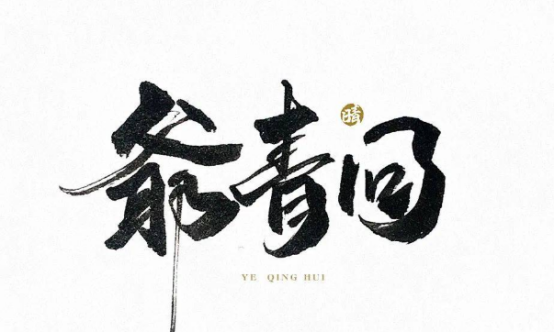 爷青回
晴
YE QING HUI